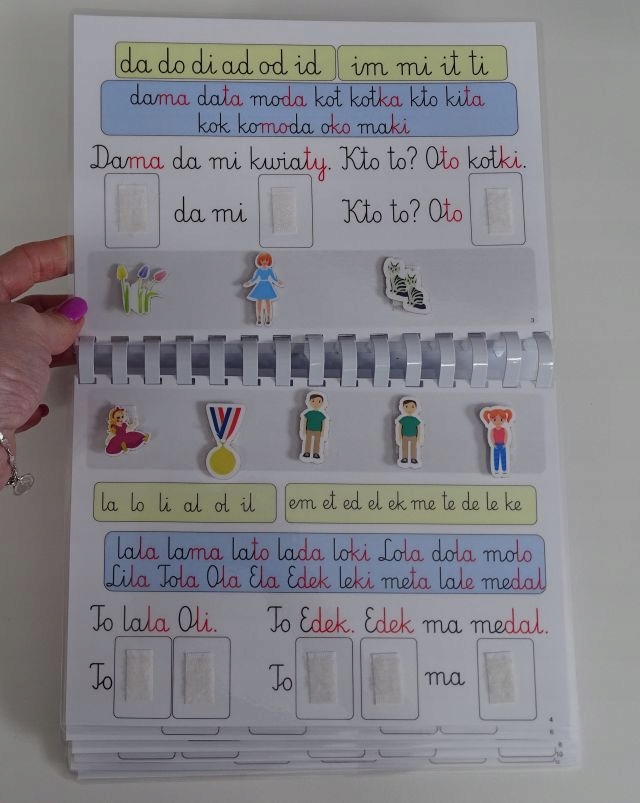 da do di ad od id
im mi it ti
dama data moda kot kotka kto kita
kok komoda oko maki
Dama da mi kwiaty. Kto to? Oto kotki.
da mi
Kto to? Oto
3
la lo li al ol il
em et ed el ek me te de le ke
lala lama lato lada loki Lola dola molo
Lila Tola Ola Ela Edek leki meta lale medal
To lala Oli.
To Edek. Edek ma medal.
To
To
ma
4
6
8
10